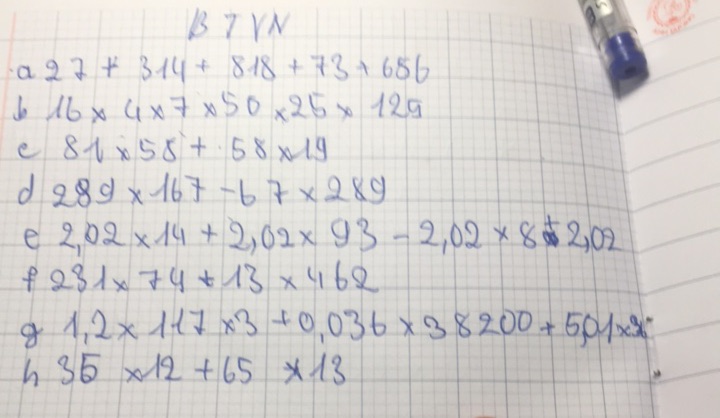 BTVN
a 27 + 314 + 818 + 73 + 656
b 16 x 4 x 7 x 50 x 25 x 125
c 81 x 58 + 58 x 19
d 289 x 167 - 67 x 289
e 2,02 x 14 + 2,02 x 93 - 2,02 x 8 + 2,02
f 231 x 74 + 13 x 462
g 1,2 x 117 x 3 + 0,036 x 38200 + 5,01 x 36
h 35 x 12 + 65 x 13